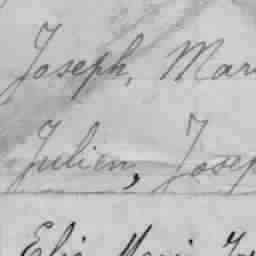 Joseph, Mar
Julien, Josep
Elie Marie Jo